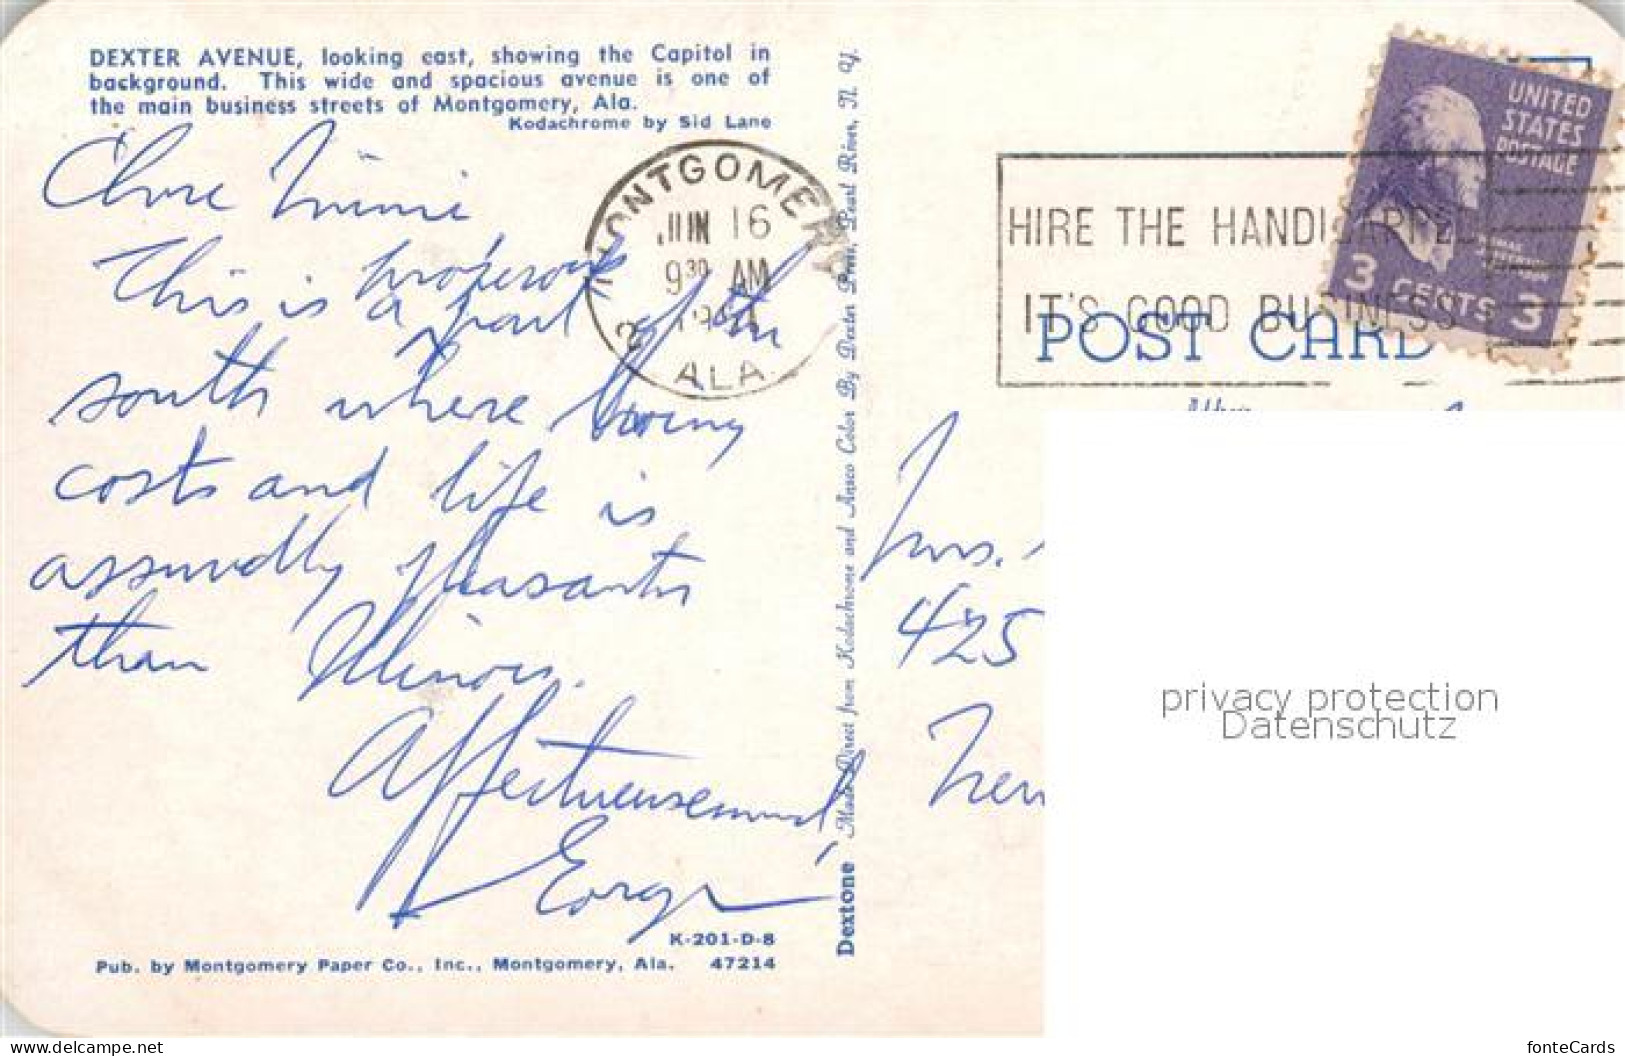 DEXTER AVENUE, looking east, showing the Capitol in
background. This wide and spacious avenue is one of
the main business streets of Montgomery, Ala.
Kodachrome by Sid Lane
Mimi
This is a prosperous part of the
south where living
costs and life is
assuredly pleasanter
than Illinois.
Affectueusement,
George
K-201-D-8
Pub. by Montgomery Paper Co., Inc., Montgomery, Ala. 47214
Dextone Made Direct from Kodachrome and Ansco Color By Dexter Press, Pearl River, N. Y.
MONTGOMERY
JUN 16
9 30 AM
2 ALA.
HIRE THE HANDICAPPED
IT'S GOOD BUSINESS
UNITED
STATES
POSTAGE
THOMAS
JEFFERSON
3 CENTS 3
POST CARD
Mrs.
425
New
privacy protection
Datenschutz
www.delcampe.net
fonteCards